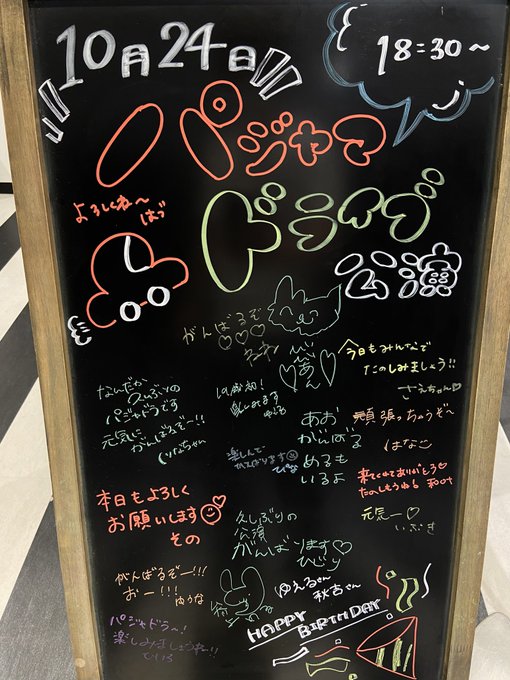 10月24日
18:30~
パジャマ
ドライブ
公演
よろしくね〜
はづ
がんばるぞ
♡♡♡
今日もみんなで
たのしみましょう!!
さえちゃん♡
なんだか
久しぶりの
パジャドラです
元気に
がんばるぞー!!
19歳初!
あお
がんばる
めるも
いるよ
頑張っちゃうぞ〜
はなこ
楽しんで
がんばります
ぴな
来てくれてありがとう♡
たのしもうね!
本日もよろしく
お願いします
その
久しぶりの
公演
がんばります♡
ひり
元気ー♡
いぶき
がんばるぞー!!!
おー!!!
ゆうな
ゆえるさん
秋吉さん
HAPPY
BIRTHDAY
パジャドラ〜!
楽しみましょうね!!